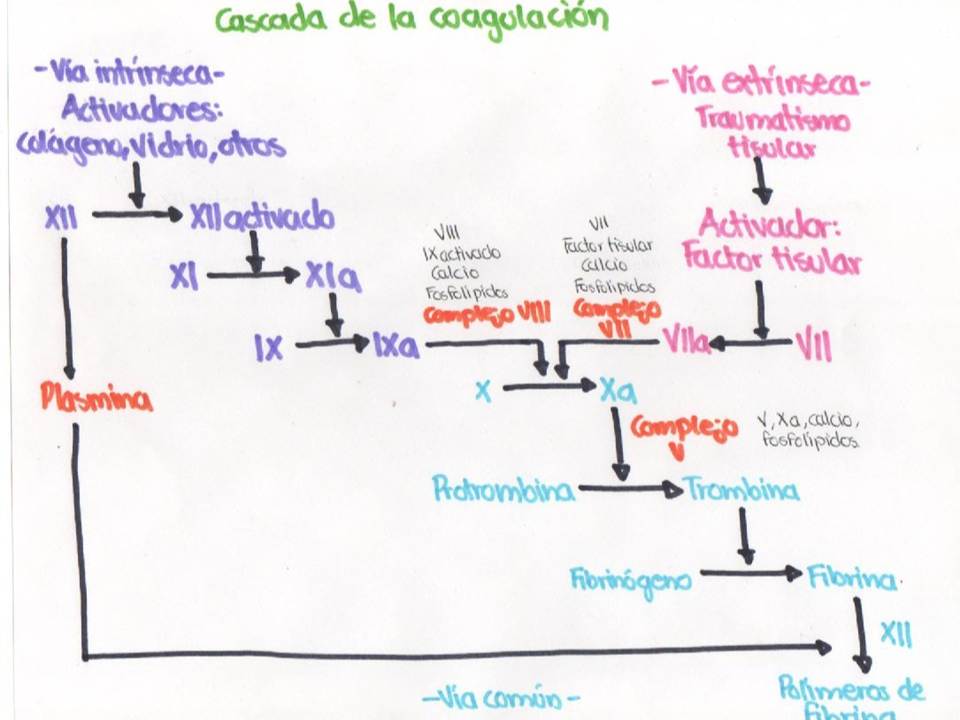 Cascada de la coagulación
-Vía intrínseca-
Activadores:
colágeno, vidrio, otros
XII
XII activado
XI
XIa
IX
IXa
Plasmina
VIII
IX activado
Calcio
Fosfolípidos
Complejo VIII
VII
Factor tisular
Calcio
Fosfolípidos
Complejo
VII
-Vía extrínseca-
Traumatismo
tisular
Activador:
Factor tisular
VIIa
VII
X
Xa
Complejo
V
V, Xa, calcio,
fosfolípidos.
Protrombina
Trombina
Fibrinógeno
Fibrina.
XII
Polímeros de
Fibrina
-Vía común-